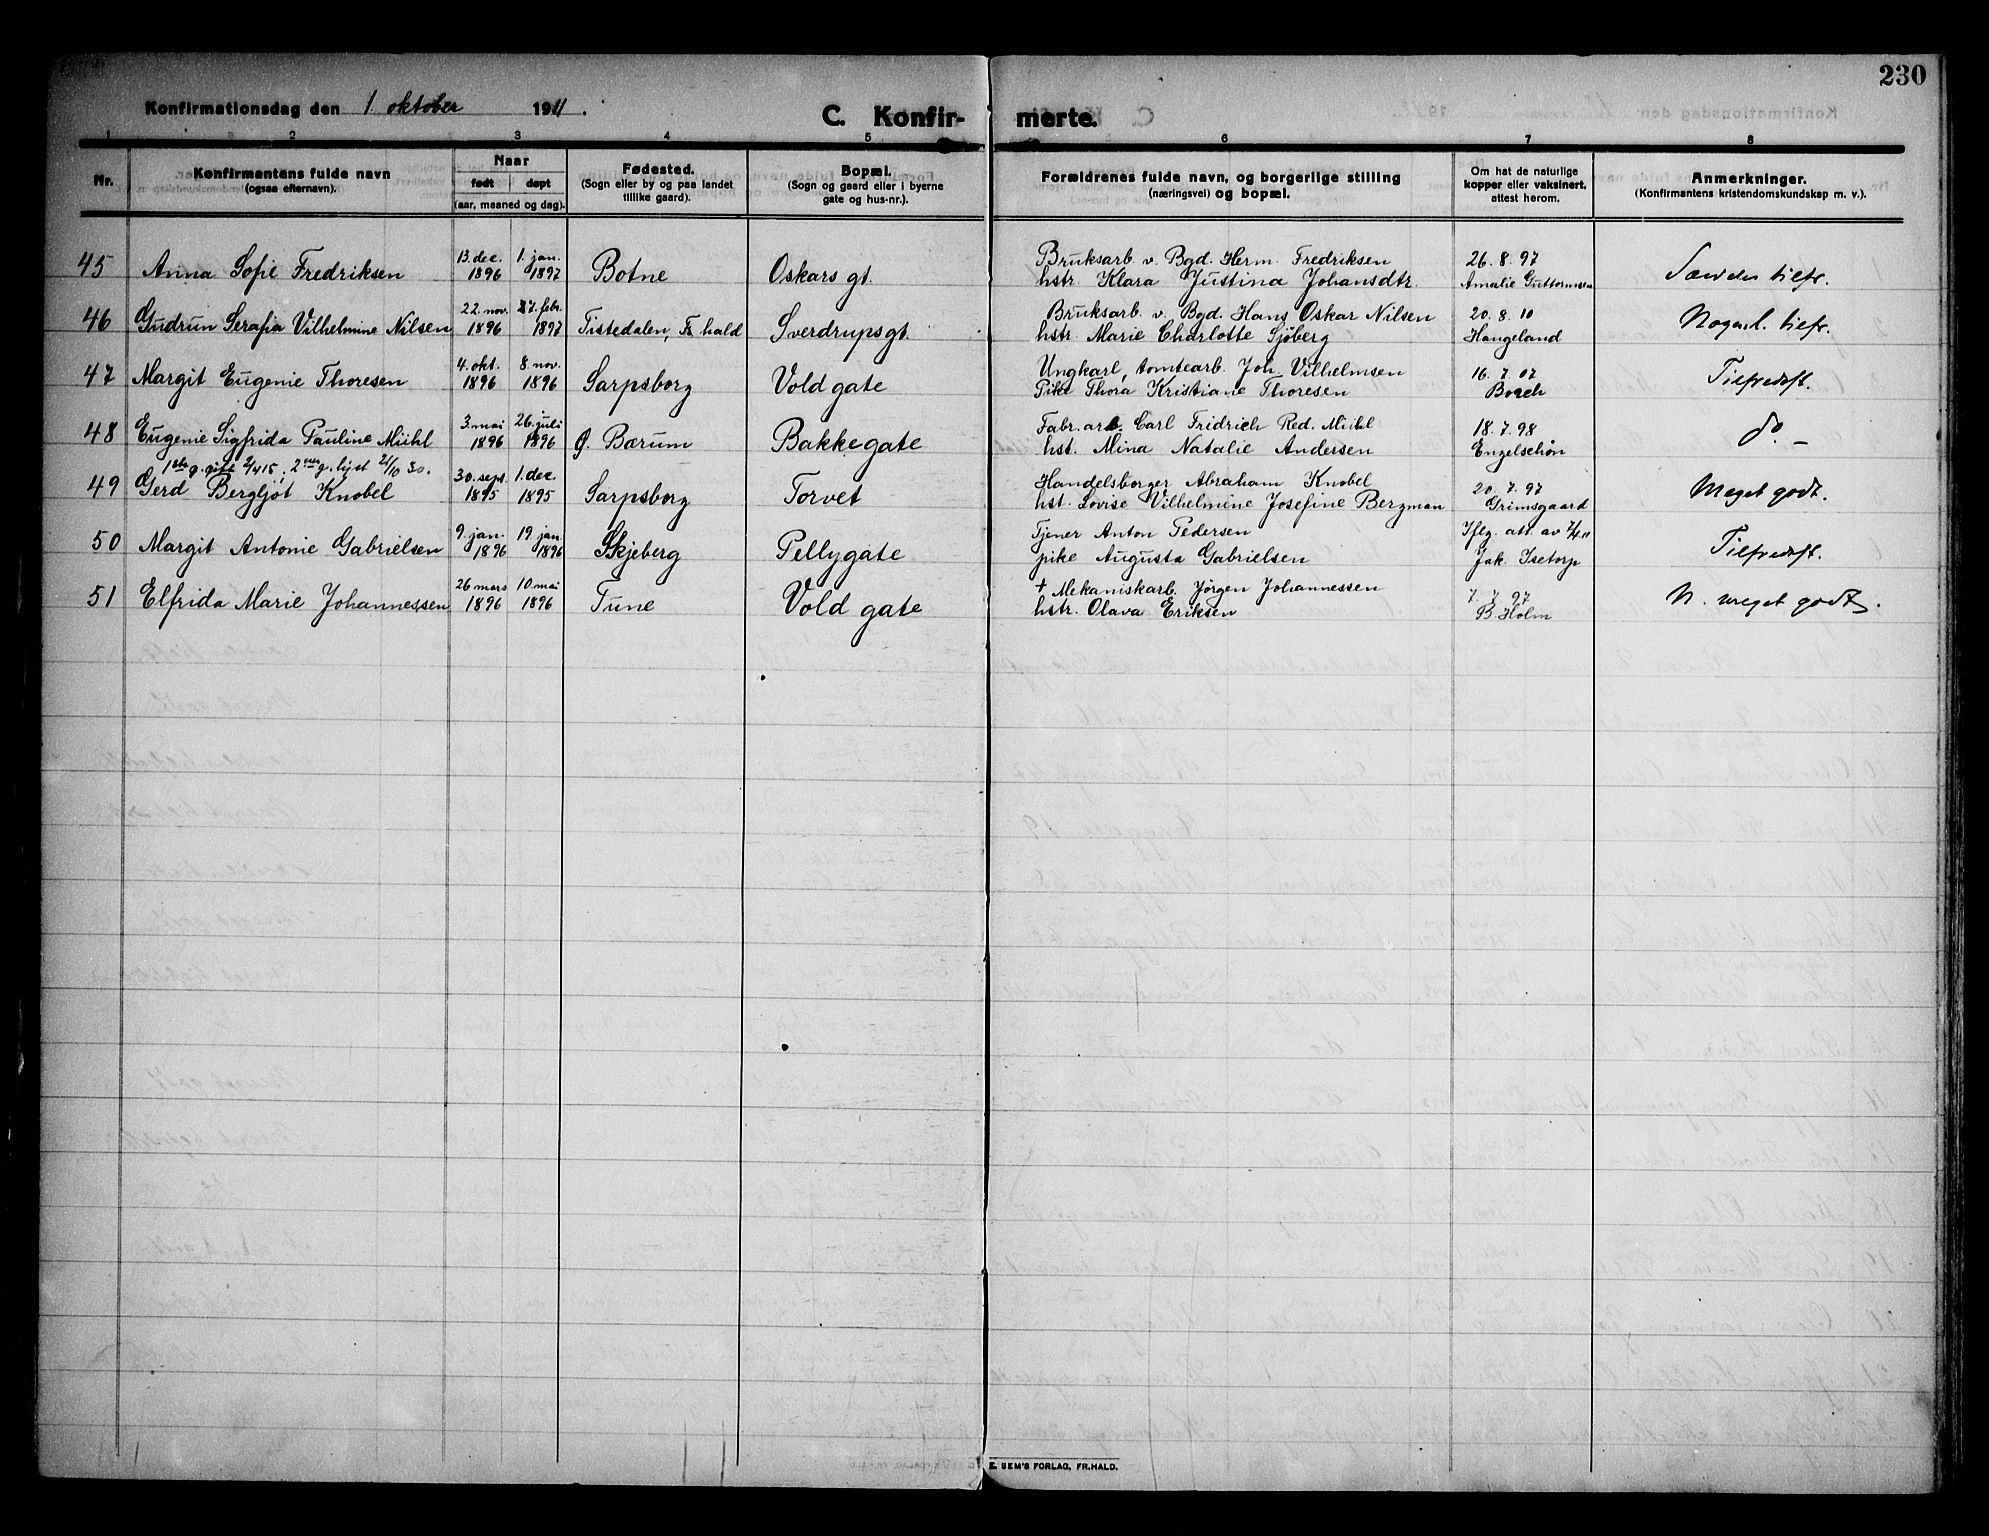 230
Konfirmationsdag den 1. oktober 1911.
C. Konfirmerte.
1 2 3 4 5 6 7 8
Nr.
Konfirmantens fulde navn
(ogsaa efternavn).
Naar
født døpt
(aar, maaned og dag).
Fødested.
(Sogn eller by og paa landet
tillike gaard).
Bopæl.
(Sogn og gaard eller i byerne
gate og hus-nr.).
Forældrenes fulde navn, og borgerlige stilling
(næringsvei) og bopæl.
Om hat de naturlige
kopper eller vaksinert,
attest herom.
Anmerkninger.
(Konfirmantens kristendomskundskap m. v.).
45 Anna Sofie Fredriksen 13. dec. 1896 1. jan. 1897 Botne Oskars gt.
Bruksarb. v. Bgd. Herm. Fredriksen
hstr. Klara Justina Johansdtr.
26.8.97
Amalie Guttormsen
Særdeles tilfr.
46 Gudrun Serafia Vilhelmine Nilsen 22. nov. 1896 27. febr. 1897 Tistedalen, Fr.hald Sverdrupsgt.
Bruksarb. v. Bgd. Hans Oskar Nilsen
hstr. Marie Charlotte Sjöberg
20.8.10
Hangeland
Nogenl. tilfr.
47 Margit Eugenie Thoresen 4. okt. 1896 8. nov. 1896 Sarpsborg Vold gate
Ungkarl, tomtearb. Joh. Vilhelmsen
Pike Thora Kristiane Thoresen
16.7.07
Borch
Tilfredsst.
48 Eugenie Sigfrida Pauline Mühl 3. mai 1896 26. juli 1896 Ø. Bærum Bakkegate
Fabr. arb. Carl Fridrich Red. Mühl
hst. Mina Natalie Andersen
18.7.98
Engelschøn
do. –
1ste g. gift 2/4 15, 2den g. lyst 21/10 30.
49 Gerd Bergljot Knobel 30. sept. 1895 1. dec. 1895 Sarpsborg Torvet
Handelsborger Abraham Knobel
hst. Lovise Vilhelmine Josefine Bergman
20.7.97
Grimsgaard
Meget godt.
50 Margit Antonie Gabrielsen 9. jan. 1896 19. jan. 1896 Skjeberg Pellygate
Tjener Anton Pedersen
pike Augusta Gabrielsen
Iflg. att. av
Jak. Isetorp
Tilfredsst.
51 Elfrida Marie Johannessen 26 mars 1896 10. mai 1896 Tune Vold gate
† Mekaniskarb. Jørgen Johannessen
hstr. Olava Eriksen
7.7.97
B. Holm
N. meget godt.
E. SEM'S FORLAG, FR.HALD.